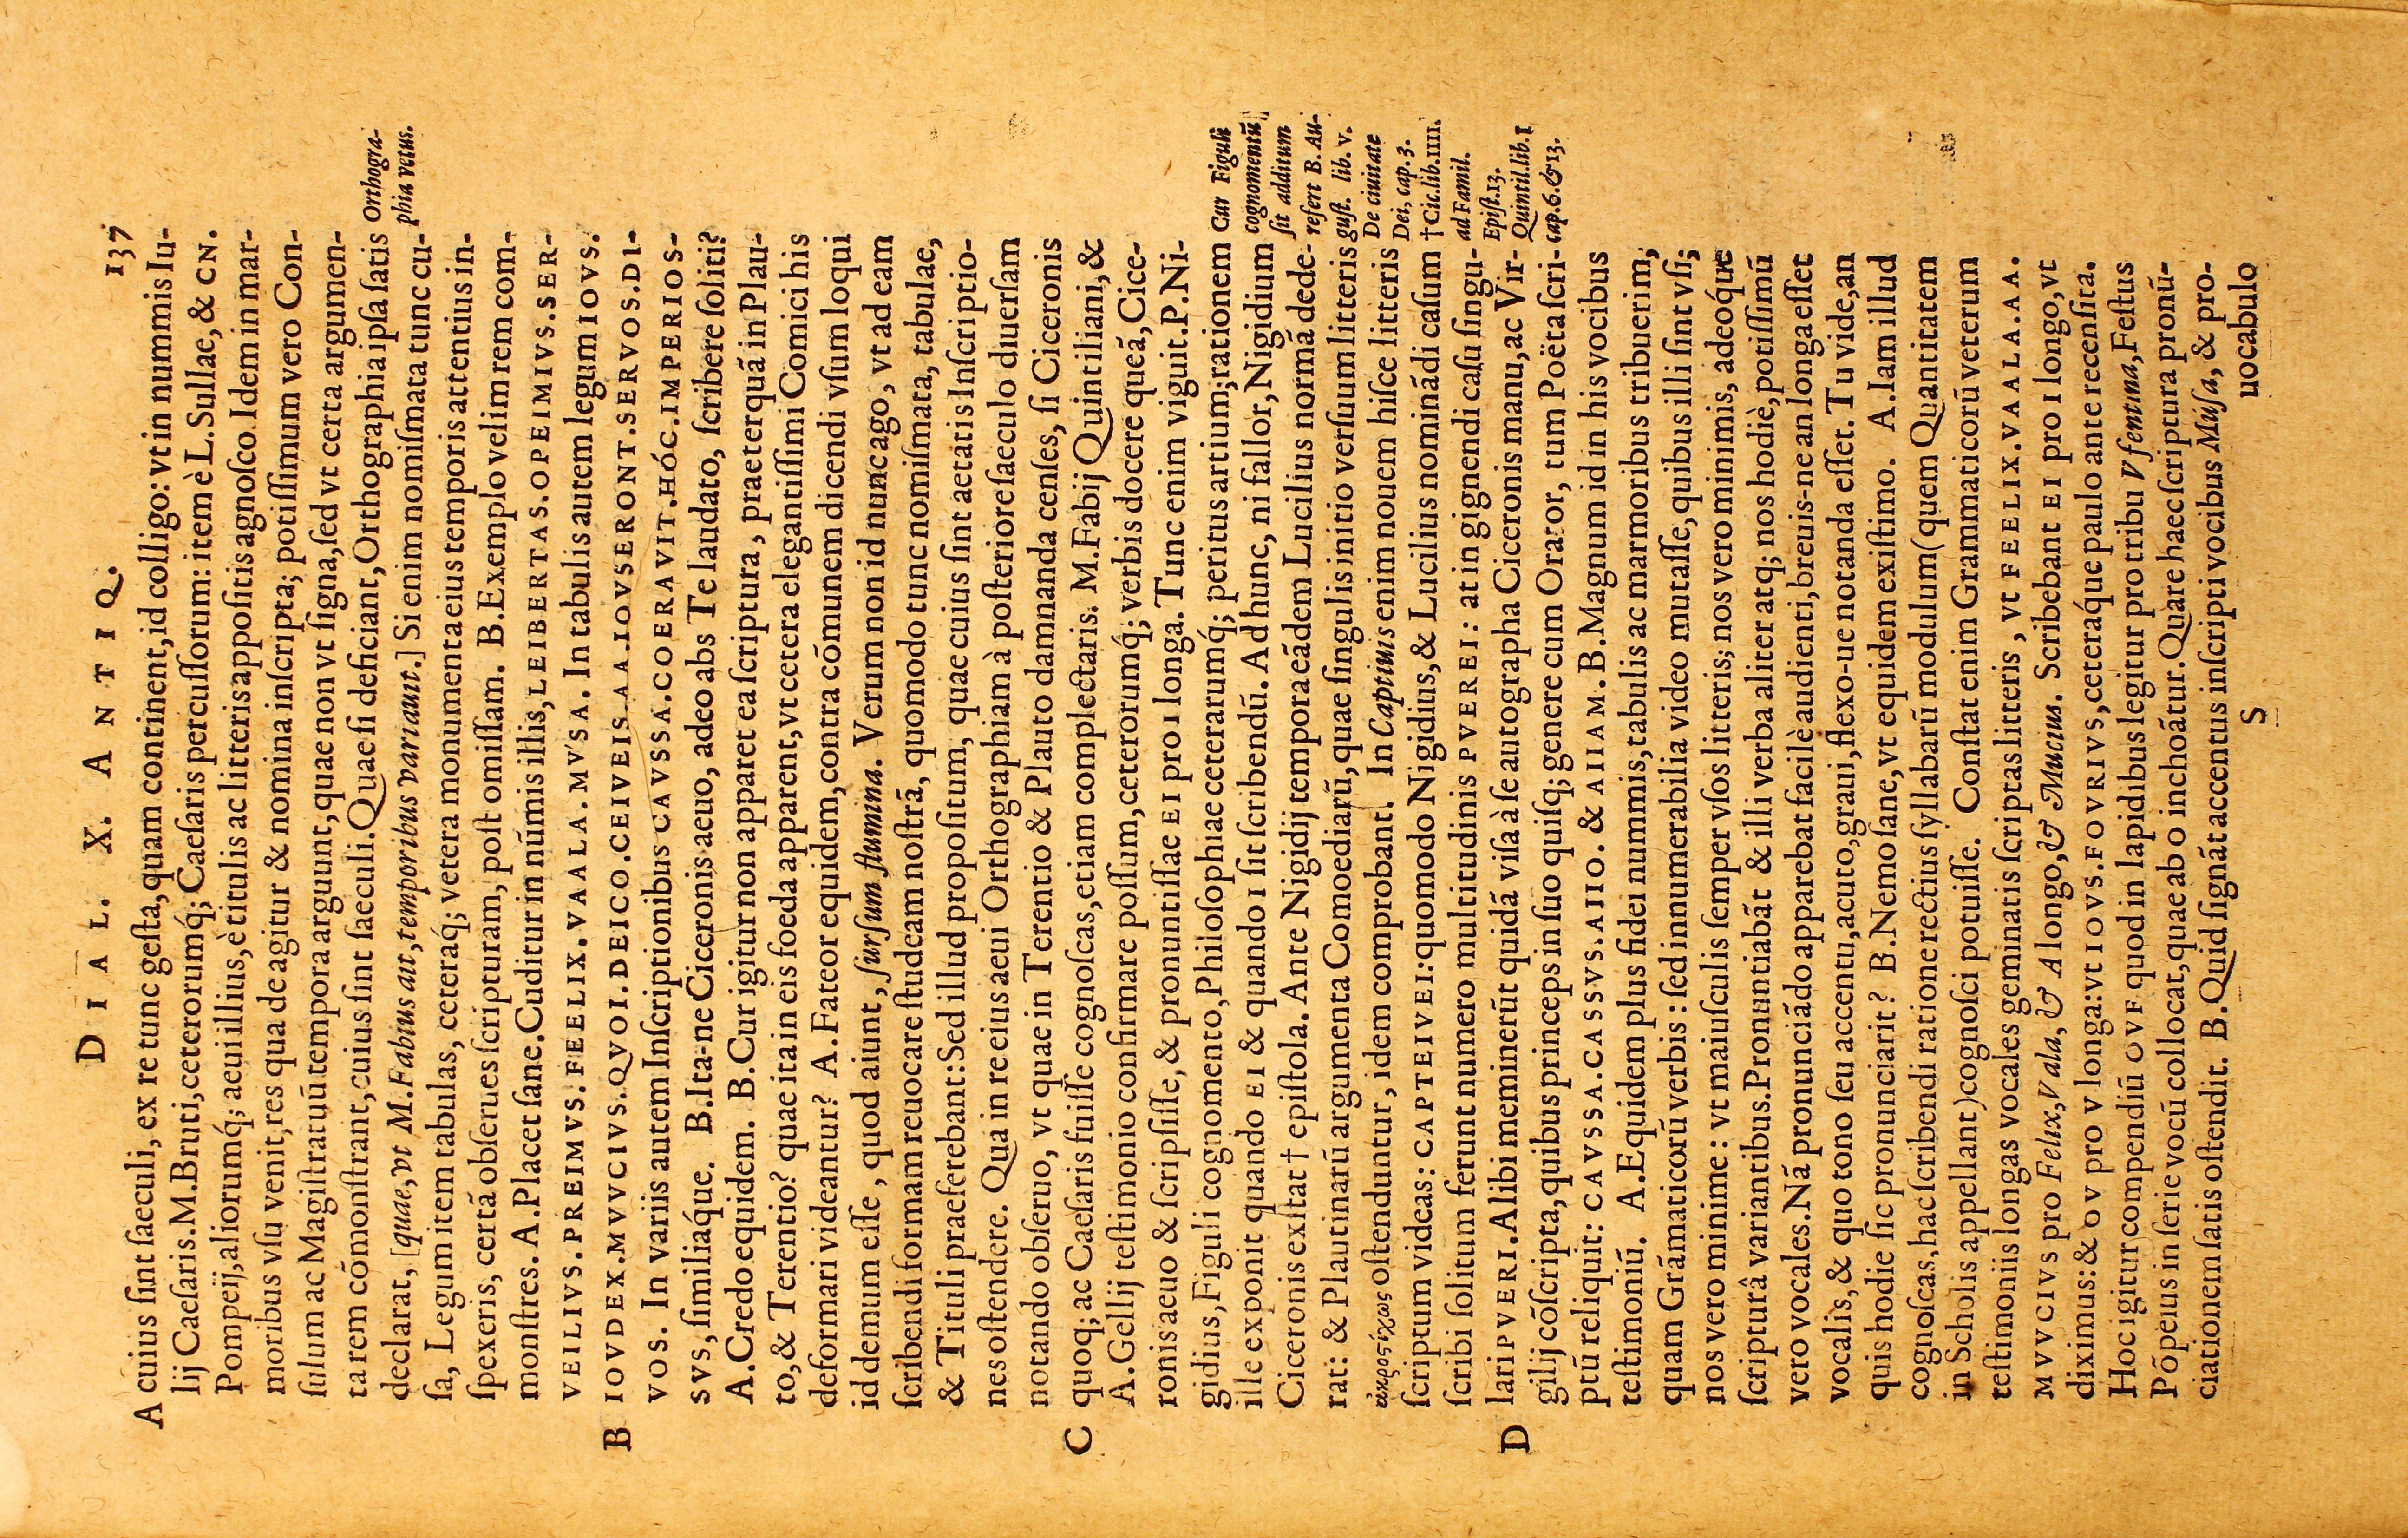 DIAL. X. ANTIQ. 137
A cuius ſint ſaeculi, ex re tunc geſta, quam continent, id colligo: vt in nummis Iu-
lij Caeſaris. M. Bruti, ceterorumq́; Caeſaris percuſſorum: item è L. Sullae, & CN.
Pompeij, aliorumq́; aeui illius, è titulis ac litteris appoſitis agnoſco. Idem in mar-
moribus vſu venit, res qua de agitur & nomina inſcripta; potiſſimum vero Con-
ſulum ac Magiſtratuū tempora arguunt, quae non vt ſigna, ſed vt certa argumen-
ta rem cōmonſtrant, cuius ſint ſaeculi. Quae ſi deficiant, Orthographia ipſa ſatis
declarat, [quae, vt M. Fabius ait, temporibus variaut.] Si enim nomiſmata tunc cu-
Orthogra-
phia vetus.
ſa, Legum item tabulas, ceteraq́; vetera monumenta eius temporis attentius in-
ſpexeris, certā obſerues ſcripturam, poſt omiſſam. B. Exemplo velim rem com-
monſtres. A. Placet ſane. Cuditur in nūmis illis, LEIBERTAS. OPEIMIVS. SER-
VEILIVS. PREIMVS. FEELIX. VAALA. MV́SA. In tabulis autem legum IOVS.
B IOVDEX. MVVCIVS. QVOI. DEICO. CEIVEIS. AA. IOVSERONT. SERVOS. DI-
VOS. In variis autem Inſcriptionibus CAVSSA. COERAVIT. HÓC. IMPERIOS-
SVS, ſimiliáque. B. Ita-ne Ciceronis aeuo, adeo abs Te laudato, ſcribere ſoliti?
A. Credo equidem. B. Cur igitur non apparet ea ſcriptura, praeterquā in Plau-
to, & Terentio? quae ita in eis foeda apparent, vt cetera elegantiſſimi Comici his
deformari videantur? A. Fateor equidem, contra cōmunem dicendi vſum loqui
id demum eſſe, quod aiunt, ſurſum flumina. Verum non id nunc ago, vt ad eam
ſcribendi formam reuocare ſtudeam noſtrā, quomodo tunc nomiſmata, tabulae,
& Tituli praeferebant: Sed illud propoſitum, quae cuius ſint aetatis Inſcriptio-
nes oſtendere. Qua in re eius aeui Orthographiam à poſteriore ſaeculo diuerſam
notando obſeruo, vt quae in Terentio & Plauto damnanda cenſes, ſi Ciceronis
C quoq; ac Caeſaris fuiſſe cognoſcas, etiam complectaris. M. Fabij Quintiliani, &
A. Gellij teſtimonio confirmare poſſum, ceterorumq́; verbis docere queā, Cice-
ronis aeuo & ſcripſiſſe, & pronuntiſſae EI pro I longa. Tunc enim viguit. P. Ni-
gidius, Figuli cognomento, Philoſophiae ceterarumq́; peritus artium; rationem
ille exponit quando EI & quando I ſit ſcribendū. Ad hunc, ni fallor, Nigidium
Ciceronis exſtat † epiſtola. Ante Nigidij tempora eādem Lucilius normā dede-
rat: & Plautinarū argumenta Comoediarū, quae ſingulis initio verſuum litteris
ἀκροστίχως oſtenduntur, idem comprobant. In Captiuis enim nouem hiſce litteris
ſcriptum videas: CAPTEIVEI: quomodo Nigidius, & Lucilius nominādi caſum
ſcribi ſolitum ferunt numero multitudinis PVEREI: at in gignendi caſu ſingu-
Cur Figuli
cognomentū
ſit additum
refert B. Au-
guſt. lib. V.
De ciuitate
Dei, cap. 3.
† Cic. lib. IIII.
ad Famil.
Epiſt. 13.
Quintil. lib. I
cap. 6. & 13.
D lari PVERI. Alibi meminerūt quidā viſa à ſe autographa Ciceronis manu, ac Vir-
gilij cōſcripta, quibus princeps in ſuo quiſq; genere cum Orator, tum Poëta ſcri-
ptū reliquit: CAVSSA. CASSVS. AIIO. & AIIAM. B. Magnum id in his vocibus
teſtimoniū. A. Equidem plus fidei nummis, tabulis ac marmoribus tribuerim,
quam Grāmaticorū verbis: ſed innumerabilia video mutaſſe, quibus illi ſint vſi;
nos vero minime: vt maiuſculis ſemper vſos litteris; nos vero minimis, adeóque
ſcripturâ variantibus. Pronuntiabāt & illi verba aliter atq; nos hodiè, potiſſimū
vero vocales. Nā pronunciādo apparebat facilè audienti, breuis-ne an longa eſſet
vocalis, & quo tono ſeu accentu, acuto, graui, flexo-ue notanda eſſet. Tu vide, an
quis hodie ſic pronunciarit? B. Nemo ſane, vt equidem exiſtimo. A. Iam illud
cognoſcas, hac ſcribendi ratione rectius ſyllabarū modulum (quem Quantitatem
in Scholis appellant) cognoſci potuiſſe. Conſtat enim Grammaticorū veterum
teſtimoniis longas vocales geminatis ſcriptas litteris, vt FEELIX. VAALA. AA.
MVVCIVS pro Felix, Vala, & A longo, & Mucius. Scribebant EI pro I longo, vt
diximus: & OV pro V longa: vt IOVS. FOVRIVS, ceteráque paulo ante recenſita.
Hoc igitur compendiū OVF quod in lapidibus legitur pro tribu Vfentina, Feſtus
Pōpeius in ſerie vocū collocat, quae ab O inchoātur. Quare haec ſcriptura pronū-
ciationem ſatis oſtendit. B. Quid ſignāt accentus inſcripti vocibus Múſa, & pro-
S uocabulo